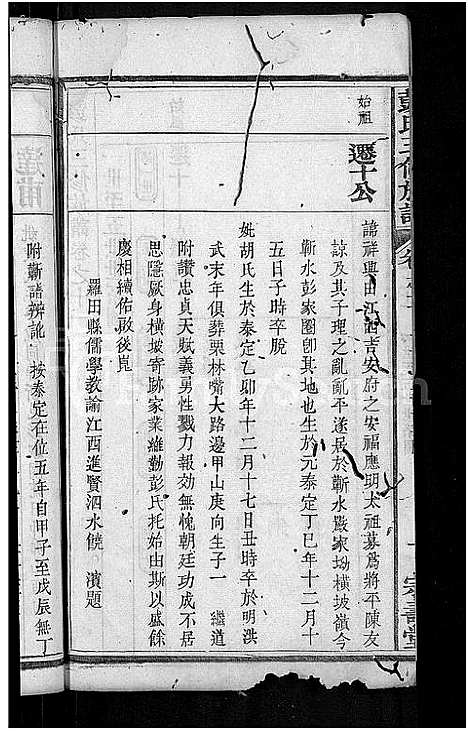 彭氏三修族譜
始祖
遷十公
諱祥興由江西吉安府之安福應明太祖募爲將平陳友
諒及其子理之亂亂平遂居於蘄水嚴家坳橫坡嶺今
蘄水彭家圈卽其地也生於元泰定丁巳年十二月十
五日子時卒脫
妣胡氏生於泰定乙卯年十二月十七日丑時卒於明洪
武末年俱葬栗林嘴大路邊甲山庚向生子一 繼道
附讚忠貞天賦義勇性戮力報効無愧朝廷功成不居
思隱厥身橫坡寄跡家業維勤彭氏托始由斯以盛餘
慶相續佑啟後崑
羅田縣儒學教諭江西進賢泗水饒 濱題
達甫
妣
附蘄譜辨訛 按泰定在位五年自甲子至戊辰無丁